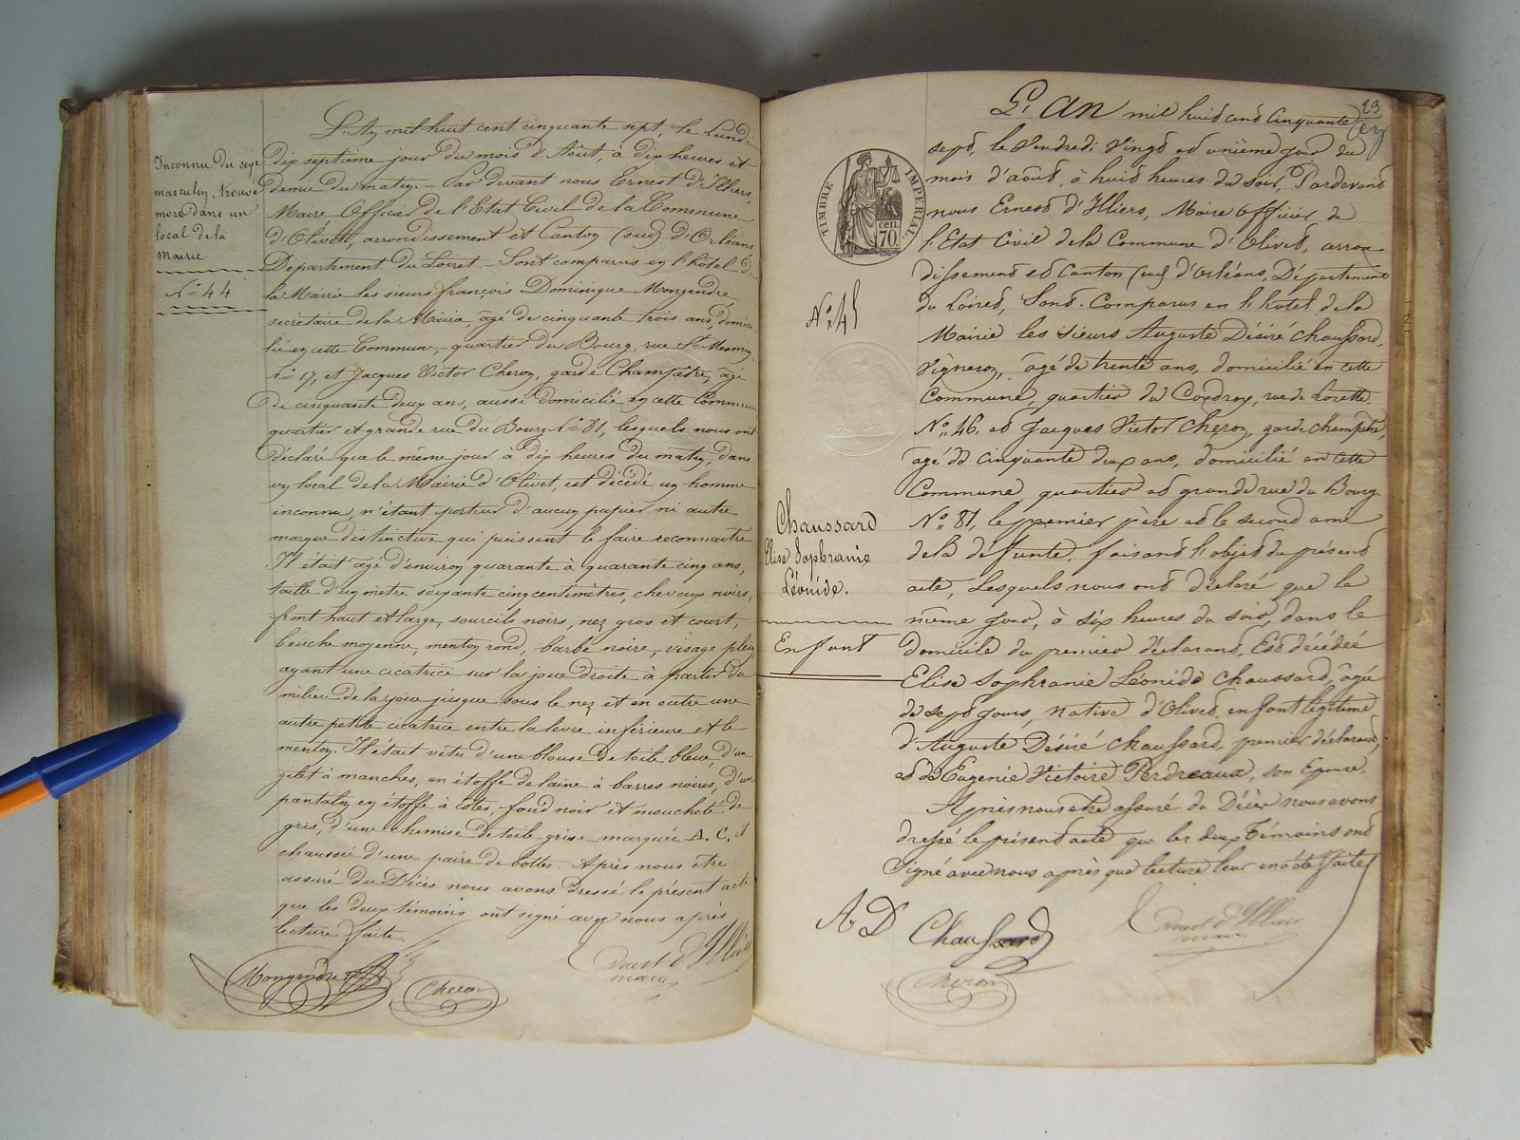 Inconnu du sexe
masculin, trouvé
mort dans un
local de la
Mairie
N° 44
L'An mil huit cent cinquante sept, le Lundi
Dix septième jour du mois d'Août, à dix heures et
demie du matin. - Par devant nous Ernest d'Illiers,
Maire, Officier de l'Etat Civil de la Commune
d'Olivet, arrondissement et Canton (sud) d'Orléans
Département du Loiret - Sont comparus en l'hôtel de
la Mairie les sieurs françois Dominique Mongendre
secrétaire de la Mairie, âgé de cinquante trois ans, domici
lié en cette Commune, quartier du Bourg, rue St Mesmin
n° 17, et Jacques Victor Cheron, garde Champêtre, âgé
de cinquante deux ans, aussi domicilié en cette Commune
quartier et grande rue du Bourg N° 81, lesquels nous ont
déclaré que le même jour à dix heures du matin, dans
un local de la Mairie d'Olivet, est décédé un homme
inconnu, n'étant porteur d'aucun papier ni autre
marque distinctive qui puissent le faire reconnaître
Il était âgé d'environ quarante à quarante cinq ans,
taille d'un mètre soixante cinq centimètres, cheveux noirs,
front haut et large, sourcils noirs, nez gros et court,
bouche moyenne, menton rond, barbe noire, visage plein
ayant une cicatrice sur la joue droite à partir du
milieu de la joue jusque sous le nez et en outre une
autre petite cicatrice entre la lèvre inférieure et le
menton. Il était vêtu d'une blouse de toile bleue, d'un
gilet à manches, en étoffe de laine à barres noires, d'un
pantalon en étoffe à côtes, fond noir et moucheté de
gris, d'une chemise de toile grise marquée A. C. et
chaussé d'une paire de bottes. Après nous être
assuré du Décès nous avons dressé le présent acte
que les deux témoins ont signé avec nous après
lecture faite.
Mongendre
Cheron
Ernest d'Illiers
maire
23
TIMBRE IMPERIAL
70 cen.
N° 45
Chaussard
Elise Sophranie
Léonide.
Enfant
L'An mil huit cent cinquante
sept, le Vendredi Vingt et unième jour du
mois d'août, à huit heures du soir, Pardevant
nous Ernest d'Illiers, Maire officier de
l'Etat Civil de la Commune d'Olivet, arron
dissement et Canton (sud) d'Orléans, Département
du Loiret, Sont Comparus en l'hotel de la
Mairie les sieurs Auguste Désiré Chaussard,
Vigneron, âgé de trente ans, domicilié en cette
Commune, quartier du Coudray, rue de Lorette
N° 46. et Jacques Victor Cheron, garde champêtre,
agé de cinquante deux ans, domicilié en cette
Commune, quartier et grande rue du Bourg
N° 81, le premier père et le second ami
de la defunte, faisant l'objet du présent
acte, Lesquels nous ont déclaré que le
même jour, à six heures du soir, dans le
domicile du premier déclarant, Est décédée
Elise Sophranie Léonide Chaussard, âgée
de sept jours, native d'Olivet, enfant légitime
d'Auguste Désiré Chaussard, premier déclarant,
et de Eugenie Victoire Perdreaux, son Epouse.
Après nous être assuré du Décès nous avons
dressé le présent acte que les deux témoins ont
Signé avec nous après que lecture leur en a été faite
A D Chaussard
Ernest d'Illiers
maire
Cheron